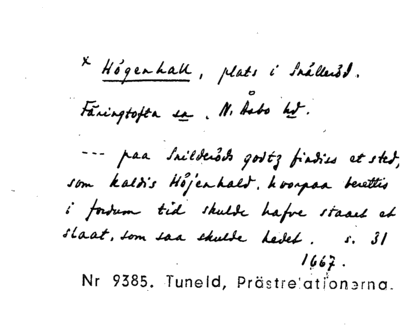 x Högenhall, plats i Snälleröd.
Färingtofta sn, N. Åsbo hd.
--- paa Snilderöds godtz findiss et sted,
som kaldis Höjenhald, hvorpaa berettis
i fordum tid skulde hafve staaet et
slaat, som saa skulde hedet. s. 31
1667.
Nr 9385. Tuneld, Prästrelationerna.